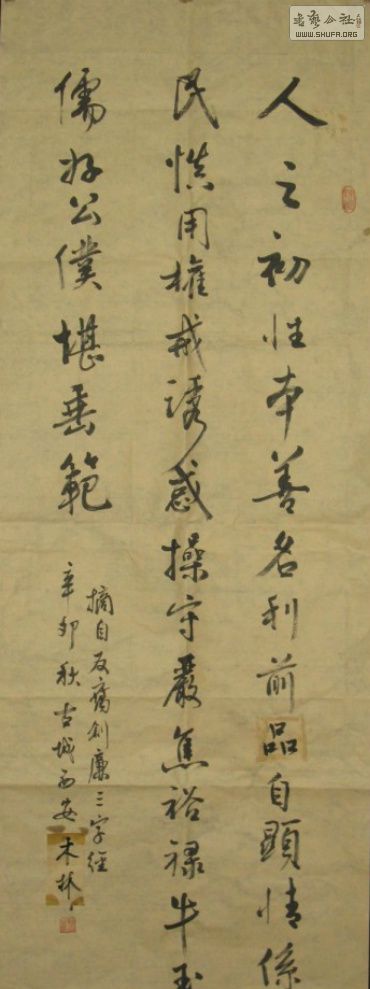 人之初性本善名利前品自顯情係
民慎用權戒誘惑操守嚴焦裕禄牛玉
儒好公僕堪垂範
摘自反腐倡廉三字經
辛卯秋古城西安木林
書藝公社
WWW.SHUFA.ORG